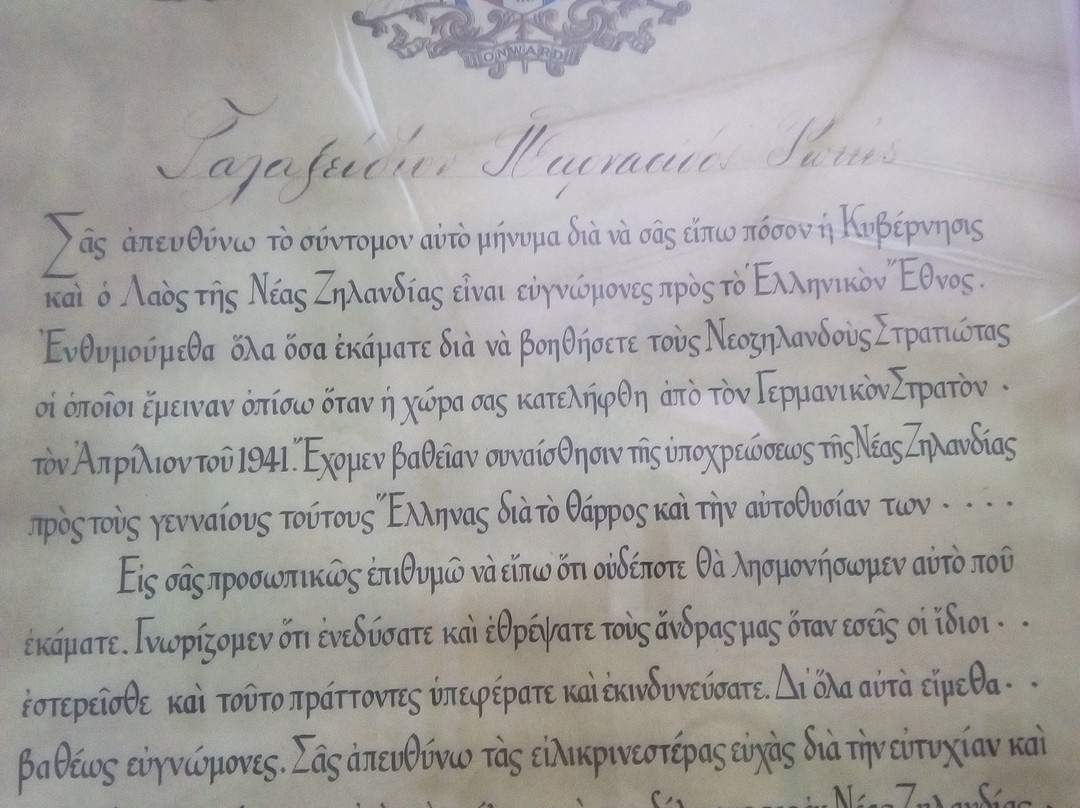 ONWARD
Γαλαξείδιον Παρνασσίδος
Σᾶς ἀπευθύνω τὸ σύντομον αὐτὸ μήνυμα διὰ νὰ σᾶς εἴπω πόσον ἡ Κυβέρνησις
καὶ ὁ Λαὸς τῆς Νέας Ζηλανδίας εἶναι εὐγνώμονες πρὸς τὸ Ἑλληνικὸν Ἔθνος.
Ἐνθυμούμεθα ὅλα ὅσα ἐκάματε διὰ νὰ βοηθήσετε τοὺς Νεοζηλανδοὺς Στρατιώτας
οἱ ὁποῖοι ἔμειναν ὀπίσω ὅταν ἡ χώρα σας κατελήφθη ἀπὸ τὸν Γερμανικὸν Στρατὸν .
τὸν Ἀπρίλιον τοῦ 1941. Ἔχομεν βαθεῖαν συναίσθησιν τῆς ὑποχρεώσεως τῆς Νέας Ζηλανδίας
πρὸς τοὺς γενναίους τούτους Ἕλληνας διὰ τὸ θάρρος καὶ τὴν αὐτοθυσίαν των . . . .
Εἰς σᾶς προσωπικῶς ἐπιθυμῶ νὰ εἴπω ὅτι οὐδέποτε θὰ λησμονήσωμεν αὐτὸ ποῦ
ἐκάματε. Γνωρίζομεν ὅτι ἐνεδύσατε καὶ ἐθρέψατε τοὺς ἄνδρας μας ὅταν εσεῖς οἱ ἴδιοι . .
ἐστερεῖσθε καὶ τοῦτο πράττοντες ὑπεφέρατε καὶ ἐκινδυνεύσατε. Δι ὅλα αὐτὰ εἴμεθα . .
βαθέως εὐγνώμονες. Σᾶς ἀπευθύνω τὰς εἰλικρινεστέρας εὐχὰς διὰ τὴν εὐτυχίαν καὶ
Νέας Ζηλανδίας